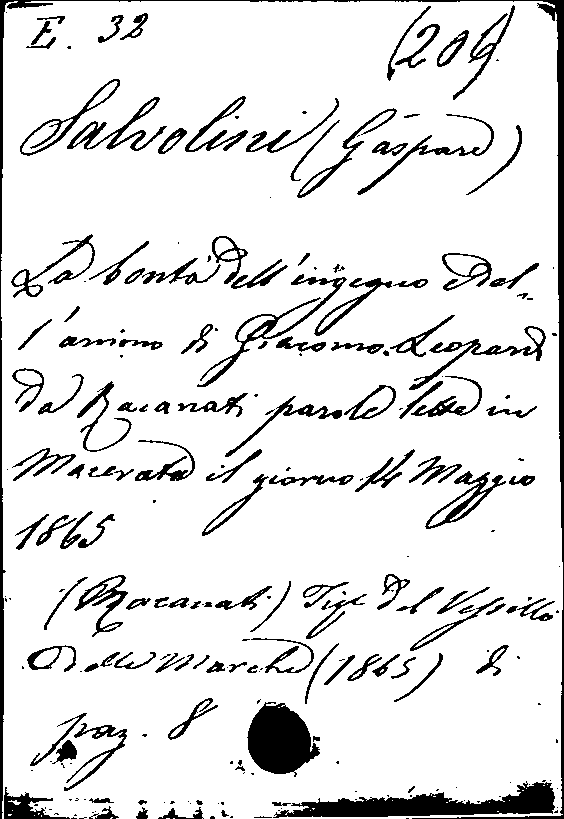 E. 32 (206)
Salvolini (Gaspare)
La bontà dell'ingegno e del-
l'animo di Giacomo Leopardi
da Racanati parole lette in
Macerata il giorno 14 Maggio
1865
(Racanati) Tip. del Vessillo
delle Marche (1865) di
pag. 8